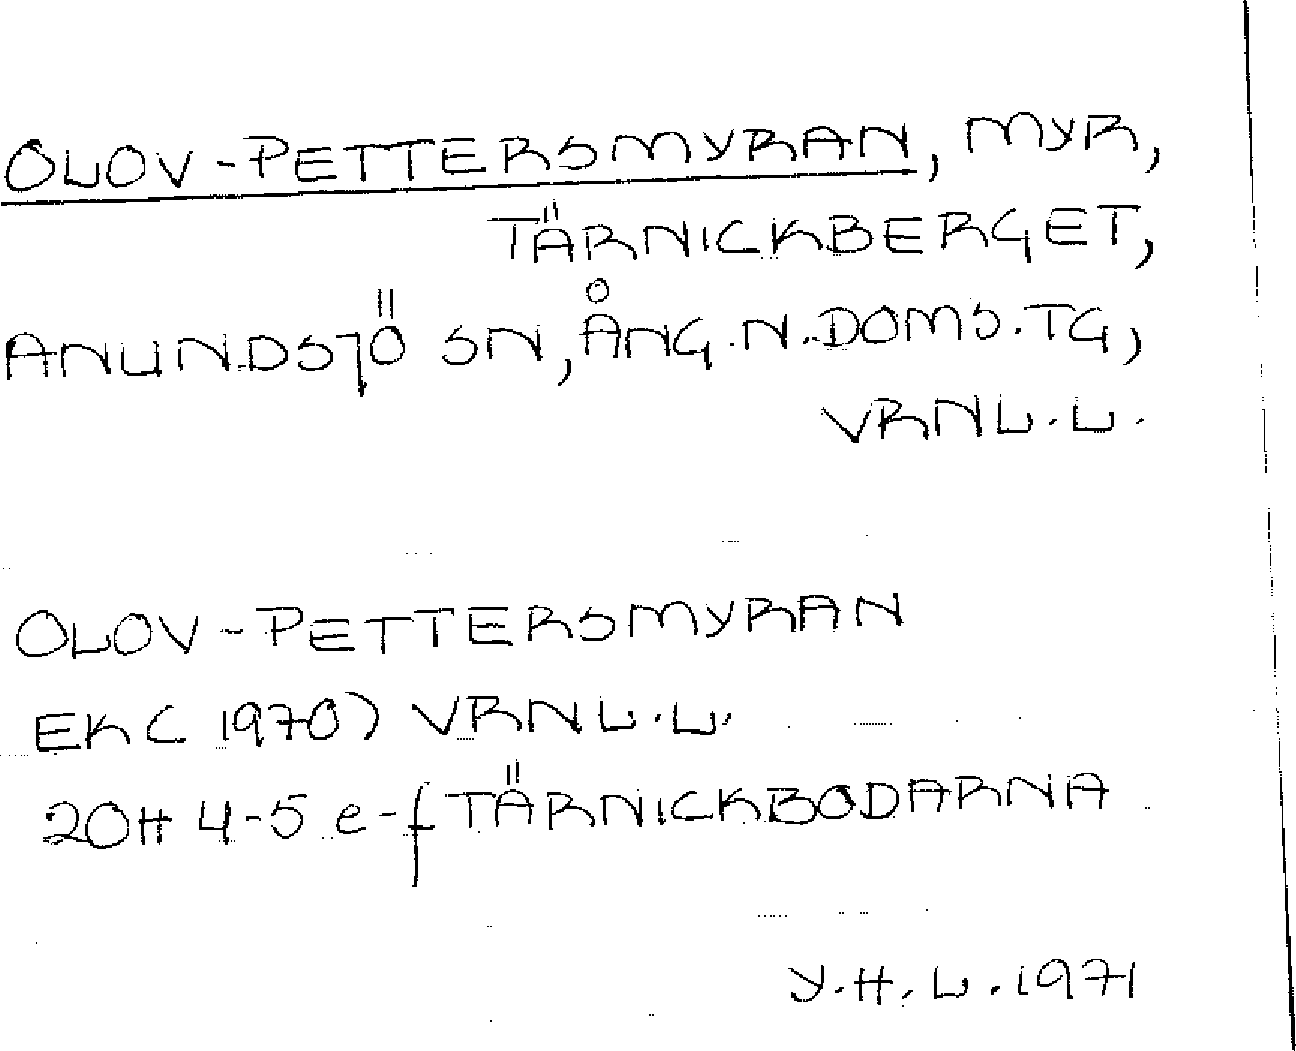 OLOV-PETTERSMYRAN, MYR,
TÄRNICKBERGET,
ANUNDSJÖ SN, ÅNG.N.DOMS.TG,
VRNL.L.
OLOV-PETTERSMYRAN
EK (1970) VRNL.L.
20H 4-5 e-f TÄRNICKBODARNA
Y.H.L.1971